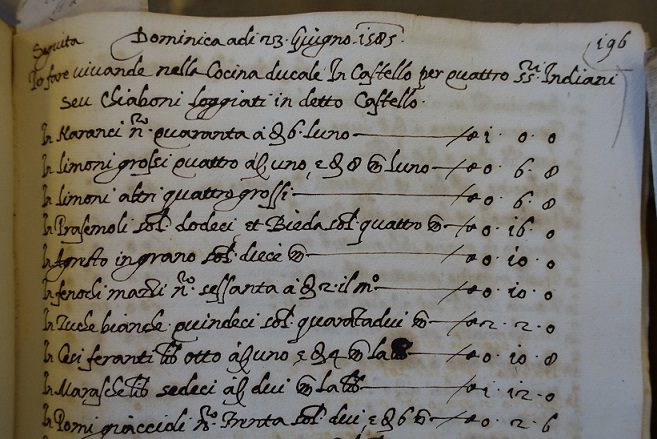 Seguita Dominica adi 23 Giugno 1585. 196
Per fare vivande nella Cocina ducale In Castello per quattro SS.ri Indiani
seu Chiaboni loggiati in detto Castello.
In Naranci n.o quaranta à 6. luno 1. 0. 0
In limoni grossi quattro à uno, e 8 luno 0. 6. 8
In limoni altri quattro grossi 0. 6. 8
In Prasemoli sol. dodeci et Bieda sol. quattro 0. 16. 0
In Agresto in grano sol. dieci 0. 10. 0
In fenochi mazzi n.o sessanta à 2. il m.o 0. 10. 0
In Zuche bianche quindeci sol. quarātadui 2. 2. 0
In Cesi feranti lib. otto à uno e 4 la lib. 0. 10. 8
In Marasche lib. sedeci à dui la lib. 1. 12. 0
In Pomi giaccioli n.o Trenta sol. dui, e 6 0. 2. 6